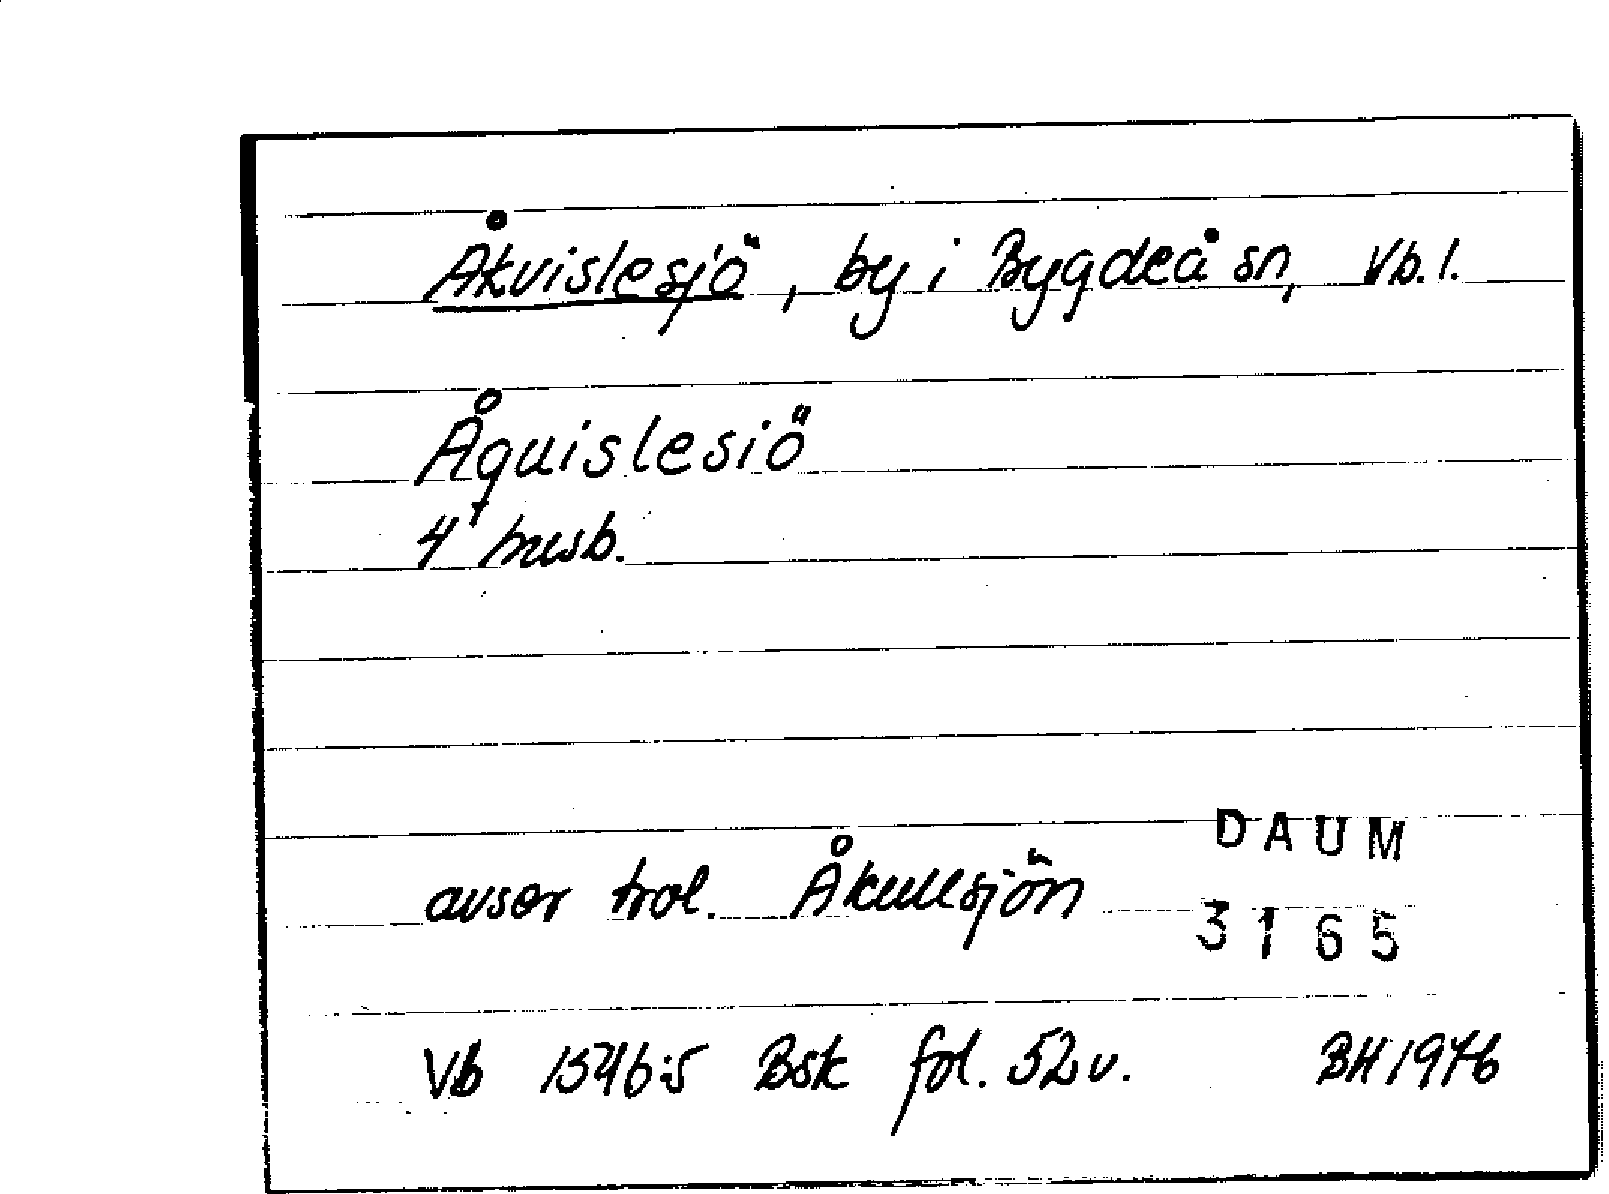 Åkvislesjö, by i Bygdeå sn, Vb. l.
Åquislesiö
4 husb.
DAUM
avser trol. Åkullsjön
3165
Vb 1546:5 Bsk fol. 52 v. BH 1976